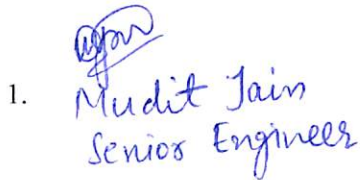 1.
Mudit Jain
Senior Engineer